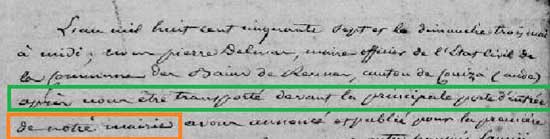 L'an mil huit cent cinquante sept et le dimanche trois mai
à midi, nous pierre Delmas, maire officier de l'Etat Civil de
la Commune des Bains de Rennes, canton de Couiza (aude)
après nous être transporté devant la principale porte d'entrée
de notre mairie avons annoncé et publié pour la première